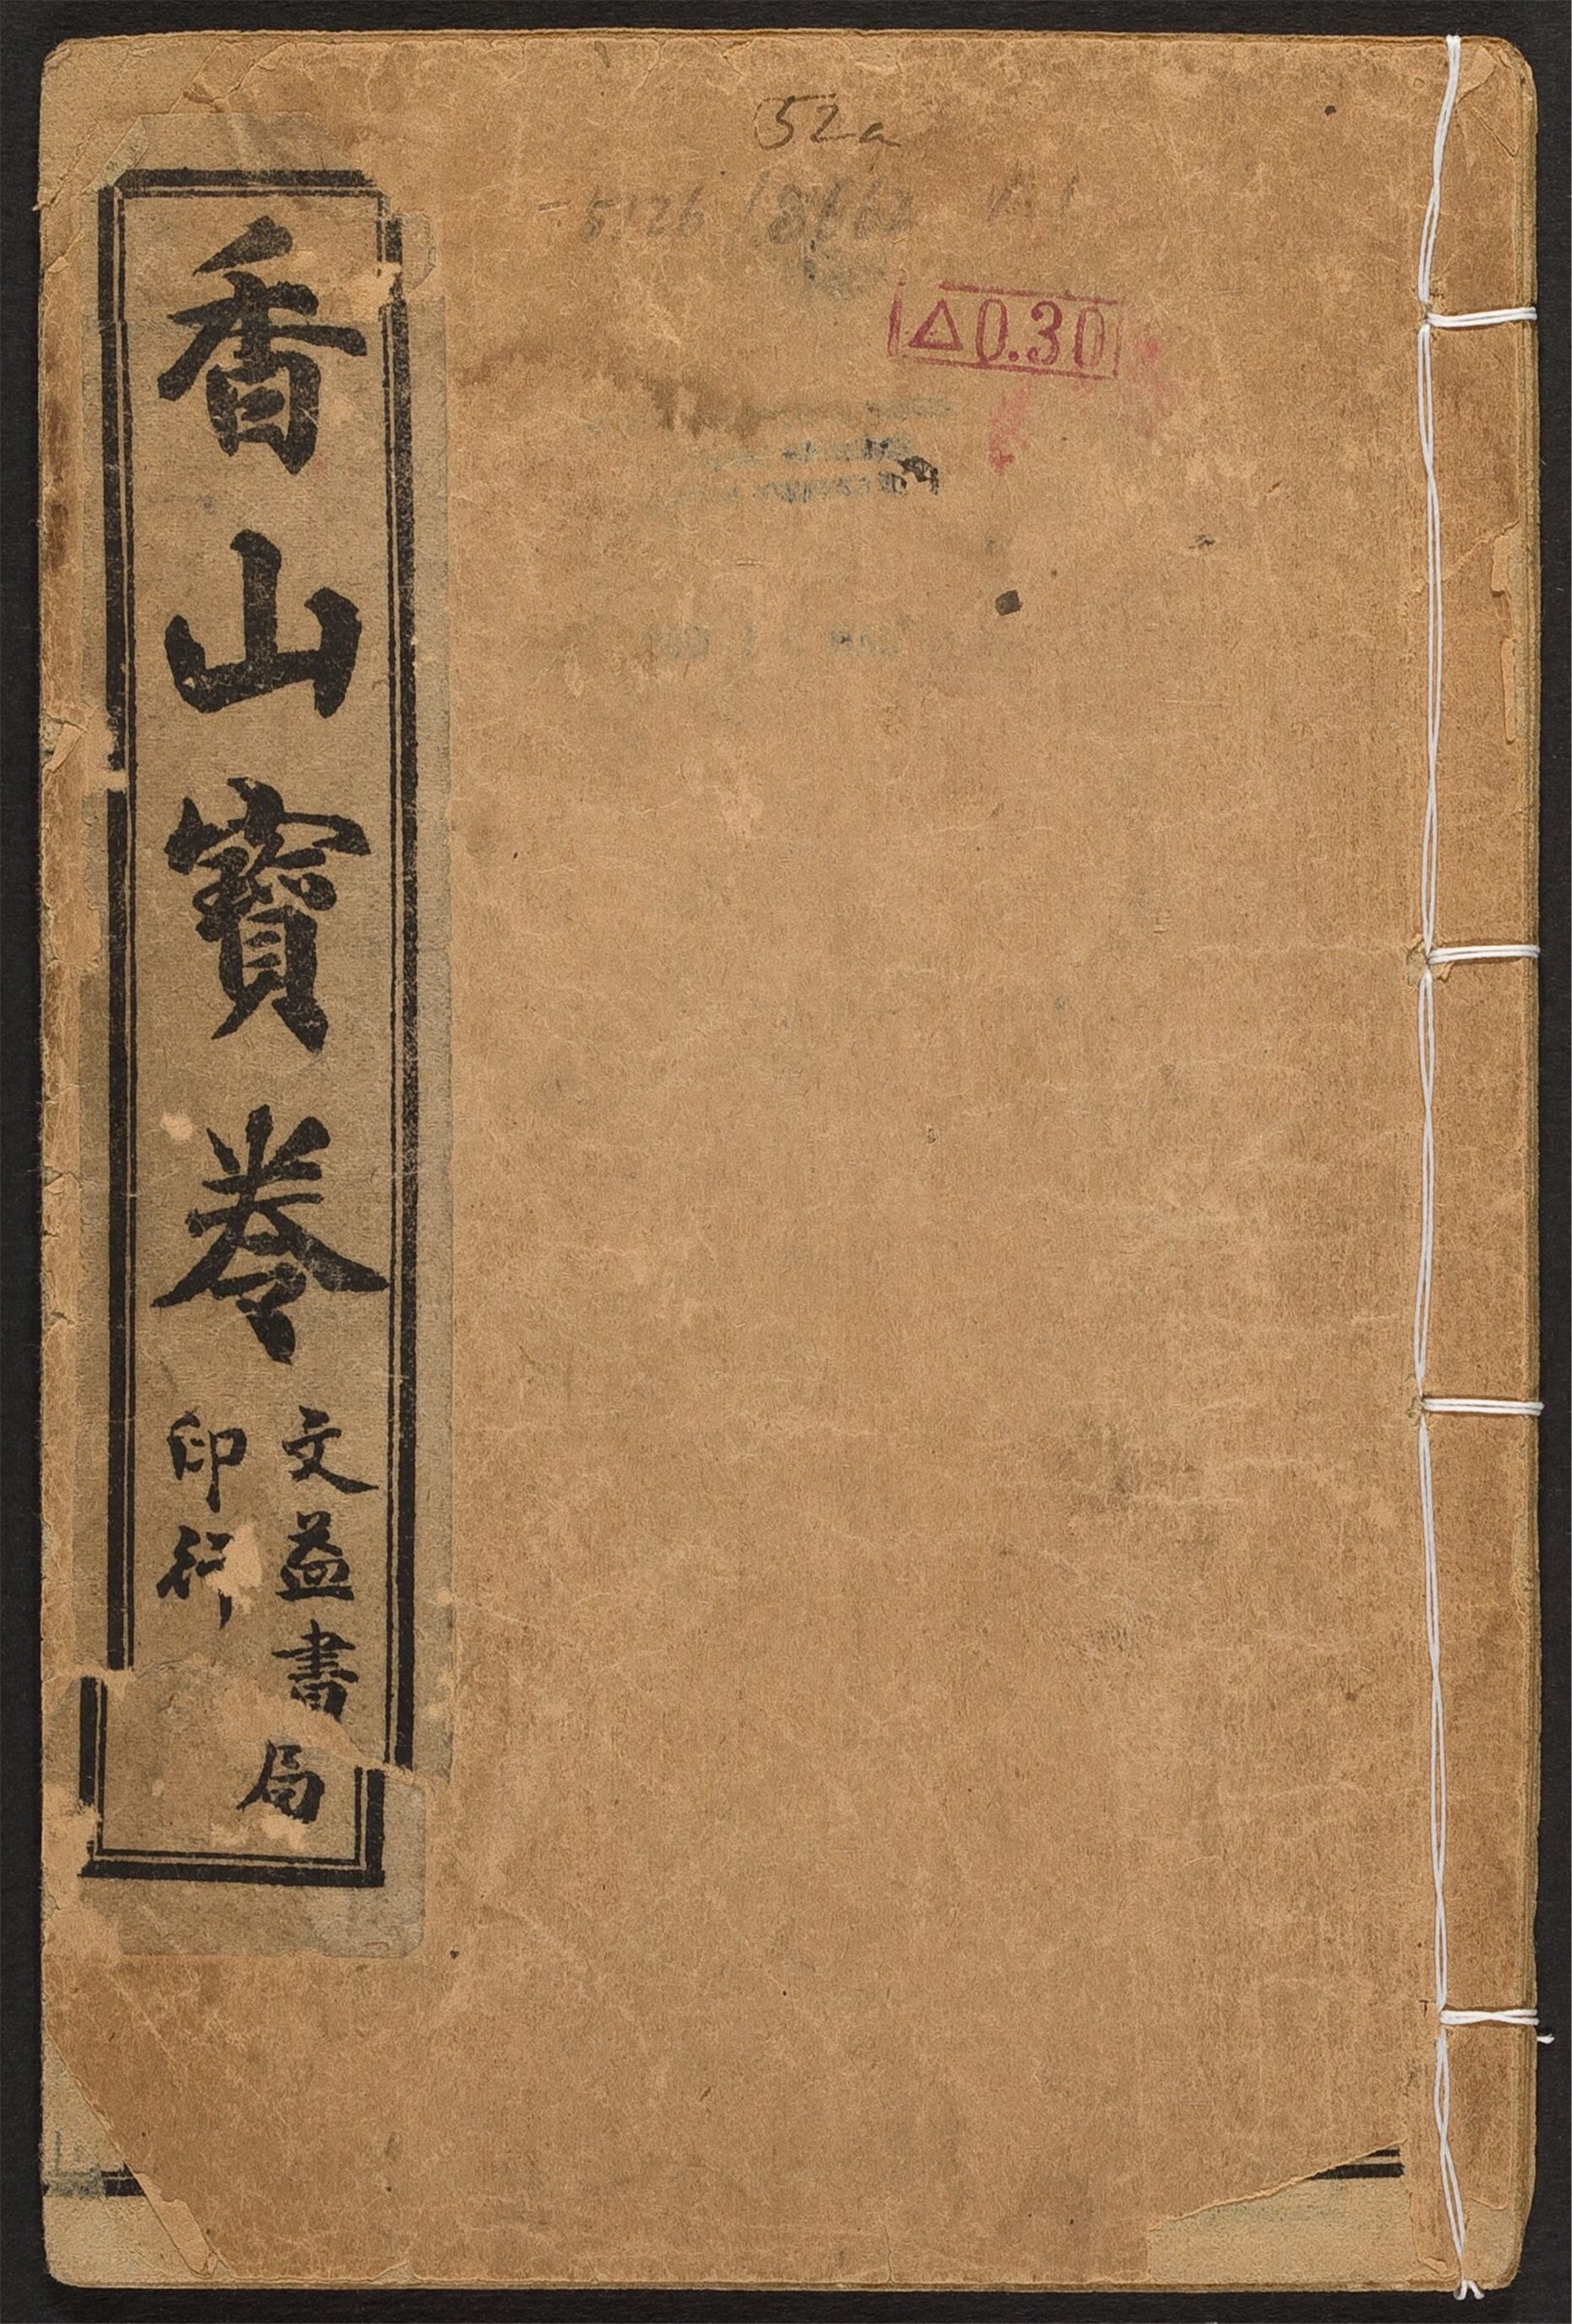 52a
5126 / 8662 V.1
△0.30
香山寶卷
文益書局
印行